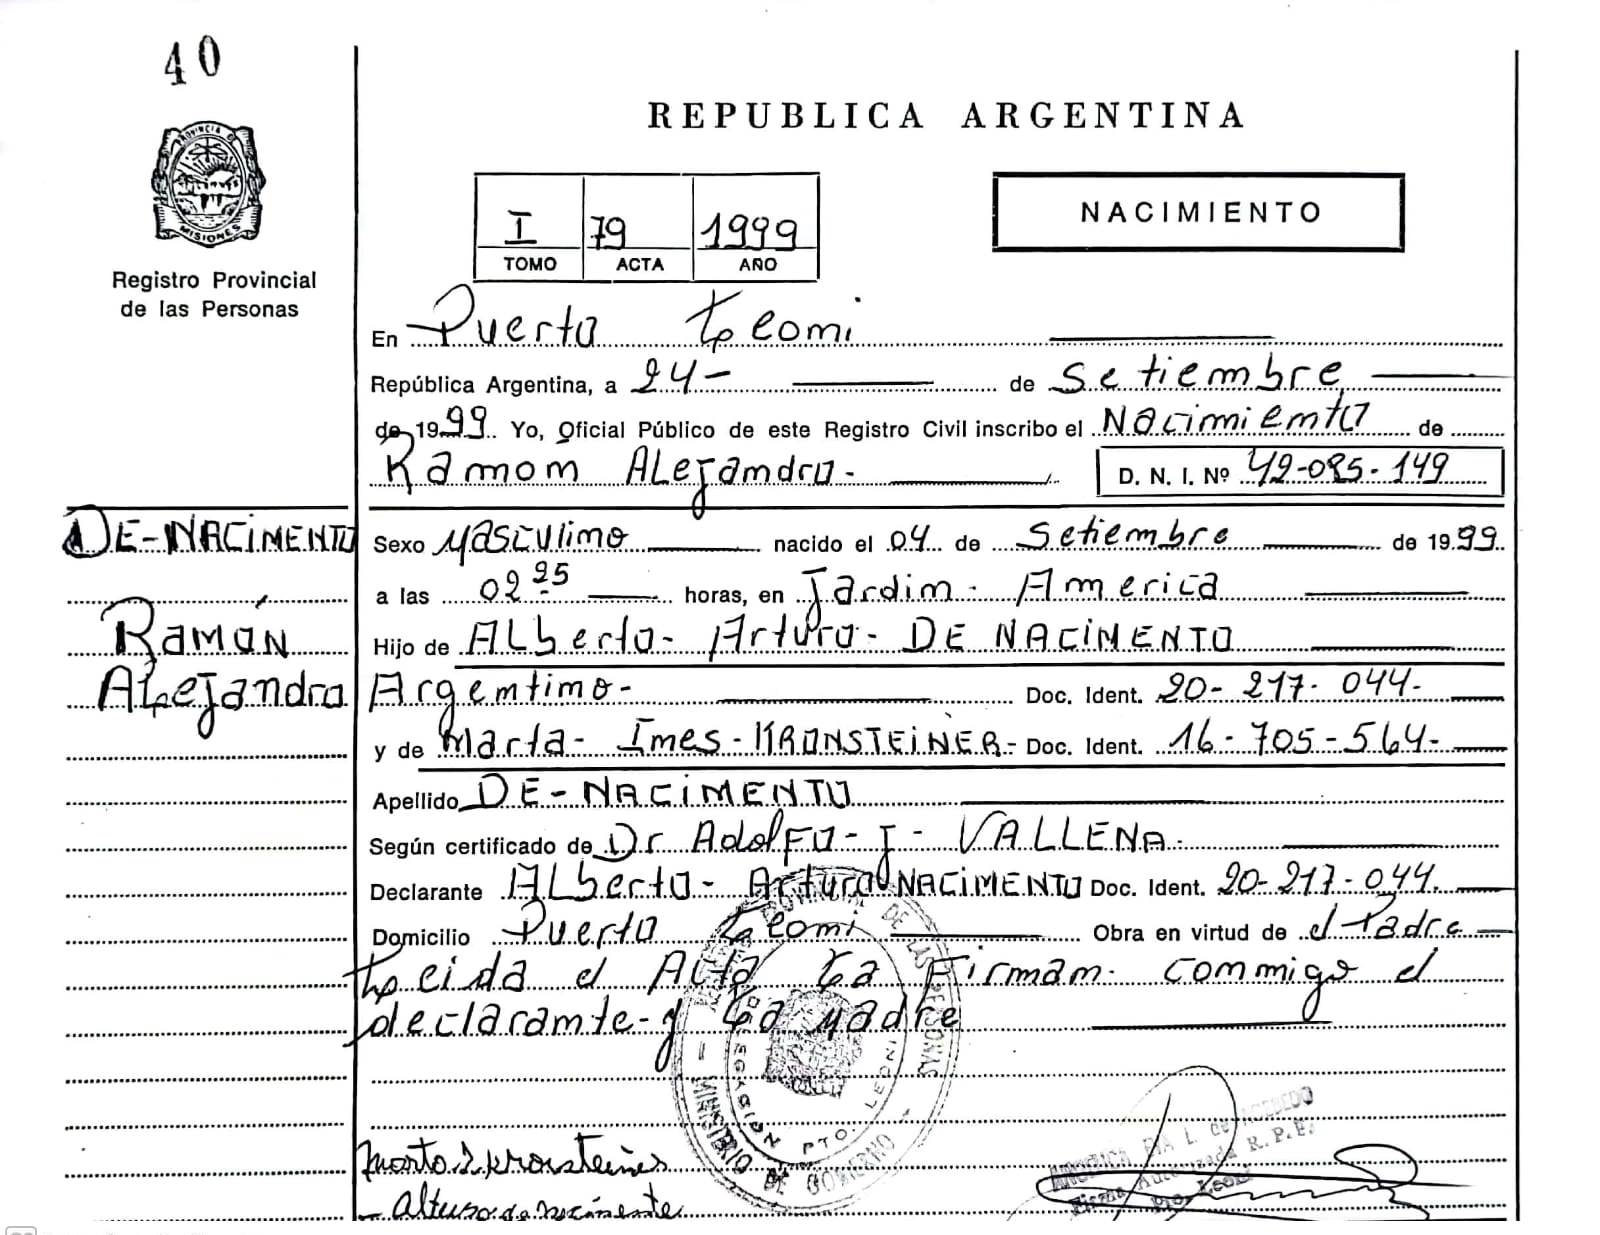 40
PROVINCIA DE
MISIONES
Registro Provincial
de las Personas
REPUBLICA ARGENTINA
I 79 1999
TOMO ACTA AÑO
NACIMIENTO
En Puerto Leoni
República Argentina, a 24- de Setiembre
de 1999 Yo, Oficial Público de este Registro Civil inscribo el Nacimiento de
Ramon ALejandro- D. N. I. Nº 42-085-149
DE-NACIMENTO
Ramón
Alejandro
Sexo Masculino nacido el 04 de Setiembre de 1999
a las 02 25 horas, en Jardin- America
Hijo de ALberto- Arturo- DE NACIMENTO
Argentino- Doc. Ident. 20-217-044-
y de Marta- Ines- KRONSTEINER- Doc. Ident. 16-705-564-
Apellido DE-NACIMENTO
Según certificado de Dr Adolfo-J- VALLENA-
Declarante ALberto- Arturo NACIMENTO Doc. Ident. 20-217-044.
Domicilio Puerto Leoni Obra en virtud de el Padre
Leida el Acta La Firman- conmigo el
declarante-y La Madre
DE LAS PERSONAS
MINISTERIO DE GOBIERNO
PTO. LEONI
L. de ACEBEDO
Firma Autorizada R.P.P.
Pto. Leoni